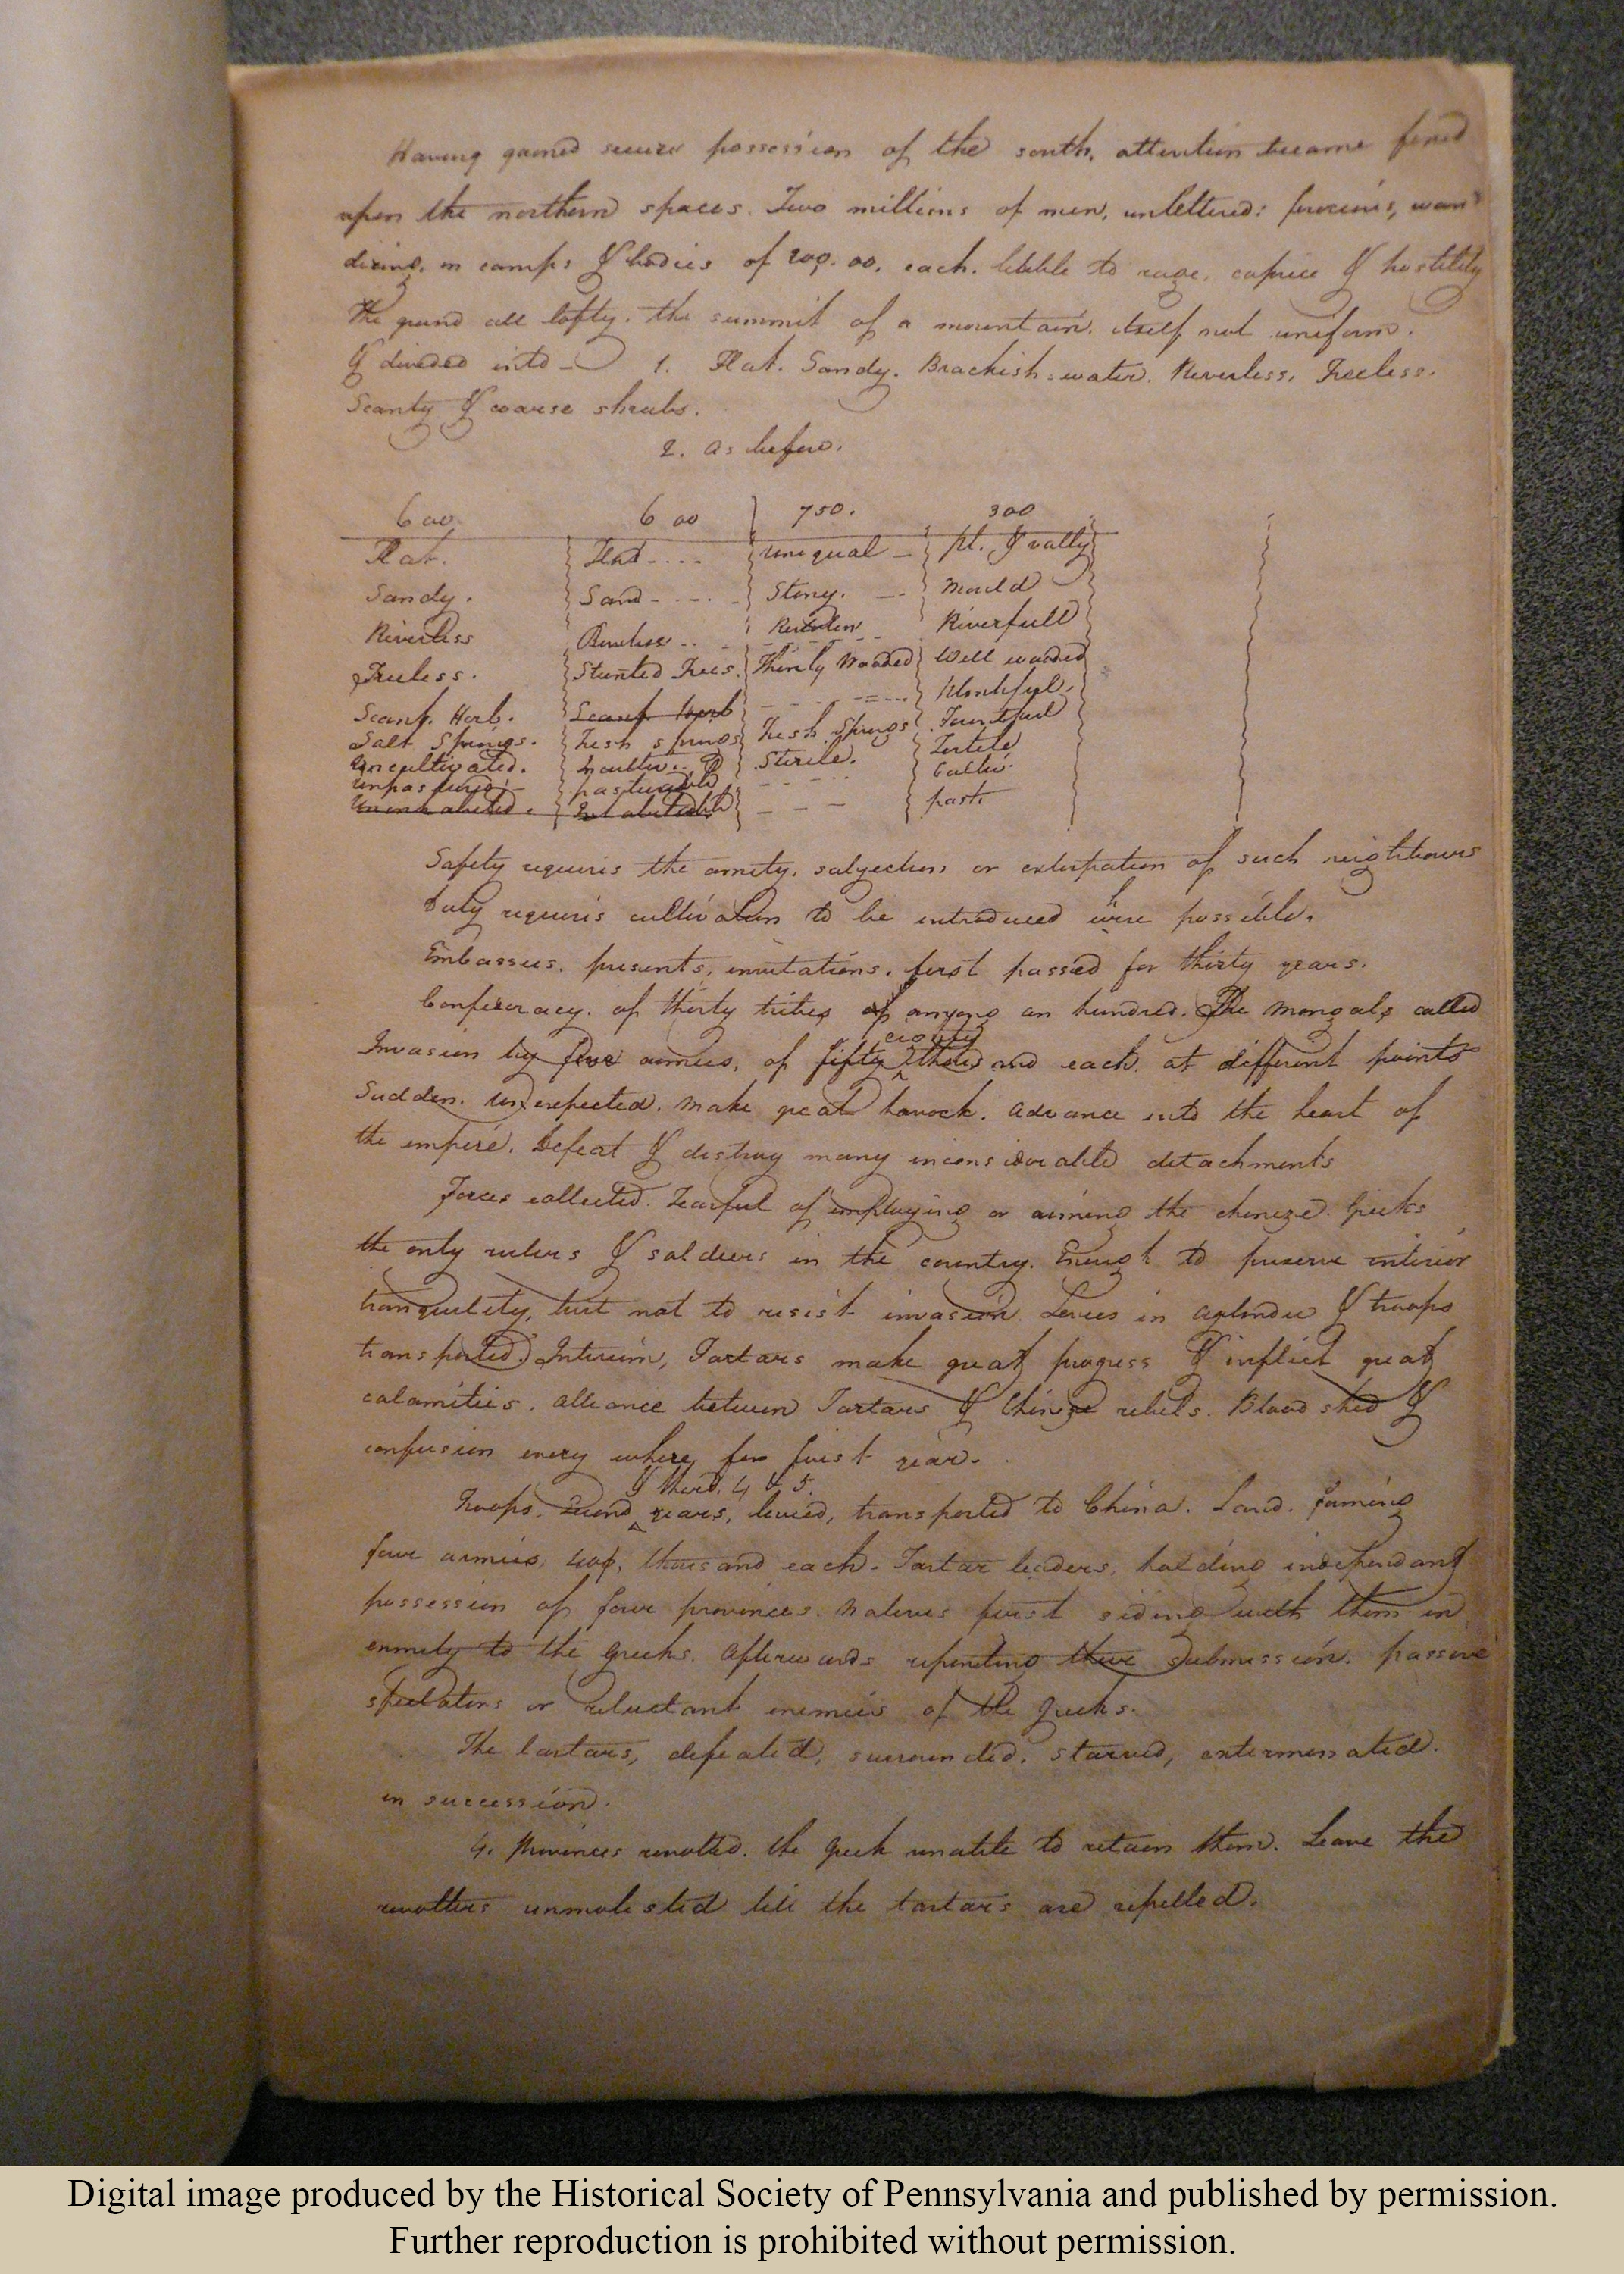 Having gained secure possession of the south, attention became fixed
upon the northern spaces. Two millions of men, unlettered: ferocious, wan
dering, in camps & bodies of 200.00. each. liable to rage, caprice & hostility
The ground all lofty. the summit of a mountain. itself not uniform.
& divided into — 1. Flat. Sandy. Brackish-water. Riverless. Treeless.
Scanty & coarse shrubs.
2. As before.
600 600 750. 300
Flat. Flat.... unequal — & vally
Sandy. Sand - - - - Stony. — - Mould
Riverless Riverless .. Riverless Riverfull
Treeless. Stunted Trees. Thinly Wooded Well wooded
Scant. Herb. Scant Herb - - - - - Plentiful.
Salt Springs. Fresh springs Fresh Springs Fountful
Uncultivated. Incultiv.. & Sterile. Fertile
Unpastured. pasturable - - - - Cultiv.
Uninhabited. Inhabitable — — — past.
Safety requires the amity, subjection or extirpation of such neighbours
Duty requires cultivation to be introduced where possible.
Embassies. presents, invitations. first passed for thirty years.
Confederacy. of thirty tribes of among an hundred. The Mongals called
Invasion by five armies, of fifty eighty thousand each. at different points
Sudden. Unexpected. Make great havock. Advance into the heart of
the empire. Defeat & destroy many inconsiderable detachments
Forces collected. Fearful of employing or arming the chineze. Greeks
the only rulers & soldiers in the country. Enough to preserve interior
tranquility, but not to resist invasion. Levies in & troops
transported. Interim, Tartars make great progress & inflict great
calamities. Alliance between Tartars & Chineze rebels. Blood shed &
confusion every where for first year.
& third. 4 & 5.
Troops. Second years, levied, transported to China. Land. Forming
four armies, 400, thousand each. Tartar leaders, holding independant
possession of four provinces. Natives first siding with them in
enmity to the greeks. Afterwards repenting their submission. passive
spectators or reluctant enemies of the Greeks.
The tartars, defeated, surrounded, starved, exterminated.
in succession.
4. Provinces revolted. the Greek unable to retain them. Leave the
revolters unmolested till the tartars are repelled.
Digital image produced by the Historical Society of Pennsylvania and published by permission.
Further reproduction is prohibited without permission.